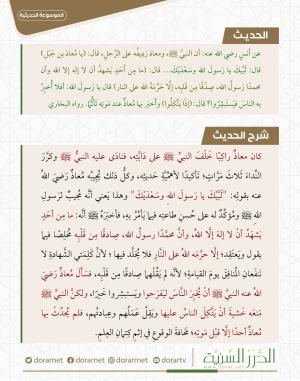 الموسوعة الحديثية
الحديث
عن أنس رضي الله عنه: أن النبيَّ ﷺ، ومعاذ رَدِيفُه على الرَّحلِ، قال: (يا معاذ بن جَبَلٍ)
قال: لَبَّيْكَ يا رسولَ الله وسَعْدَيْكَ... قال: (ما مِن أحَدٍ يشهَدُ أن لا إله إلا الله وأن
محمدًا رسول الله، صِدْقًا مِن قَلْبِه، إلَّا حرَّمه الله على النَّارِ) قال: يا رسول الله: أفلا أُخبِرُ
به الناسَ فيَستَبشِروا؟ قال: (إذًا يتَّكِلوا) وأخبر بها معاذٌ عند موتِه تأثُّمًا. رواه البخاري
شرح الحديث
كان معاذٌ راكبًا خَلْفَ النبيِّ ﷺ على دَابَّتِه، فنادى عليه النبيُّ ﷺ وكرَّرَ
النِّداءَ ثلاثَ مَرَّاتٍ؛ تأكيدًا لأهمِّيَّةِ حديثِه، وكلُّ ذلك يُجِيبُه مُعاذٌ رَضِيَ اللهُ
عنه بقولِه: "لَبَّيْكَ يا رسولَ الله وسَعْدَيْكَ" وهذا يعني أنَّه مُجيبٌ لرَسولِ
الله ﷺ ومُؤكِّدٌ له على حُسنِ طاعتِه فيما يأمُرُ به، فأخبَرَهُ ﷺ أنَّه: ما مِن أحَدٍ
يشهَدُ أنْ لا إلهَ إلَّا الله، وأنَّ محمَّدًا رسول الله، صِدقًا مِن قَلْبِه مُخلِصًا فيما
يقولُ ويَعتقِدُ؛ إلَّا حرَّمه اللهُ على النَّارِ فلا يُخلَّدُ فيها؛ لأنَّ كلِمتَيِ الشَّهادةِ لا
تَنفَعانِ المُنافِقَ يومَ القيامةِ؛ لأنَّه لم يَقُلْهما صادقًا مِن قَلْبِه، فسَألَ مُعاذٌ رَضِيَ
اللهُ عنه النبيَّ ﷺ أنْ يُخبِرَ النَّاسَ ليَفرَحوا ويَستبشِروا خيرًا، ولكنَّ النبيَّ ﷺ
مَنَعه خَشيةَ أنْ يتَّكِلَ النَّاسُ عليها ويَقِلَّ عَمَلُهم وعِبادتُهم، فلم يُحدِّثْ بها
مُعاذٌ أحدًا إلَّا قَبْلَ مَوتِه؛ مَخافةَ الوقوعِ في إثمِ كِتمانِ العِلمِ.
الدرر السنية
www.dorar.net
dorarnet dorarnet dorarnet dorartv